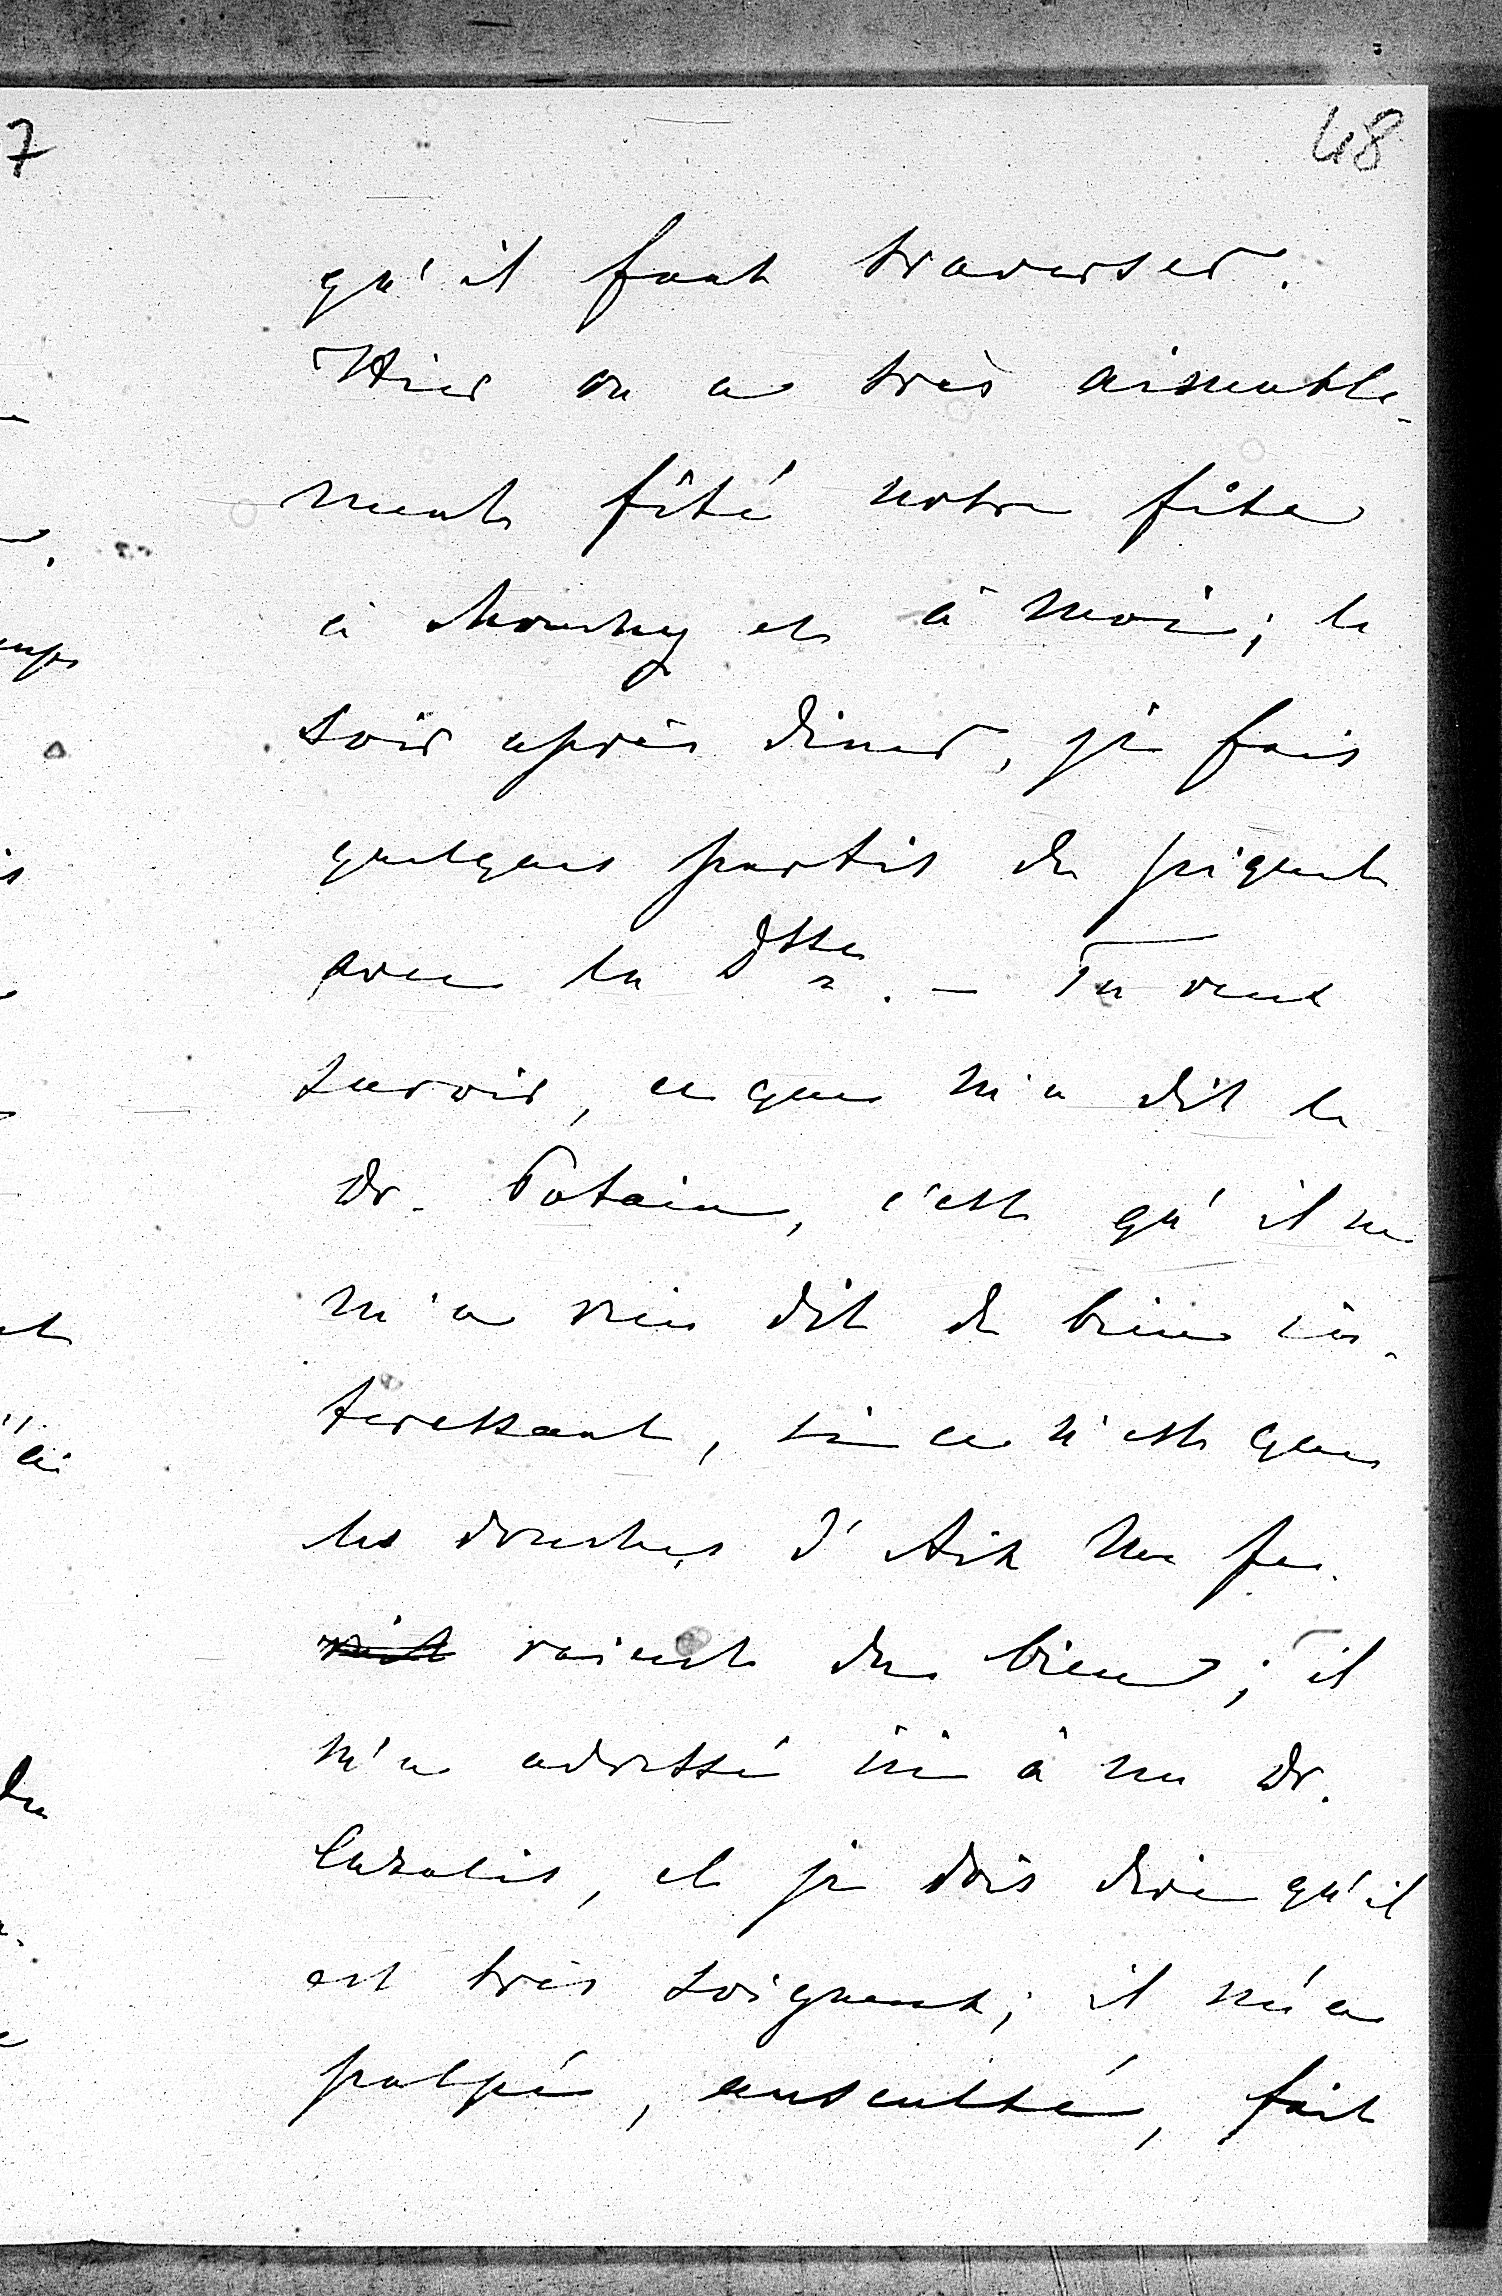 48
qu'il faut traverser.
Hier on a très aimable-
ment fêté notre fête
à Mouchy et à moi; le
soir après diner, je fais
quelques partis de piquet
avec la Dsse. — Tu veut
savoir, ce que m'a dit le
Dr. Potain, c'est qu'il ne
m'a rien dit de bien in-
teressant, si ce n'est que
les douches d'Aix me fe-
raient du bien; il
m'a adressé ici à un Dr.
Cazalis, et je dois dire qu'il
est très soigneux; il m'a
palpé, ausculté, fait